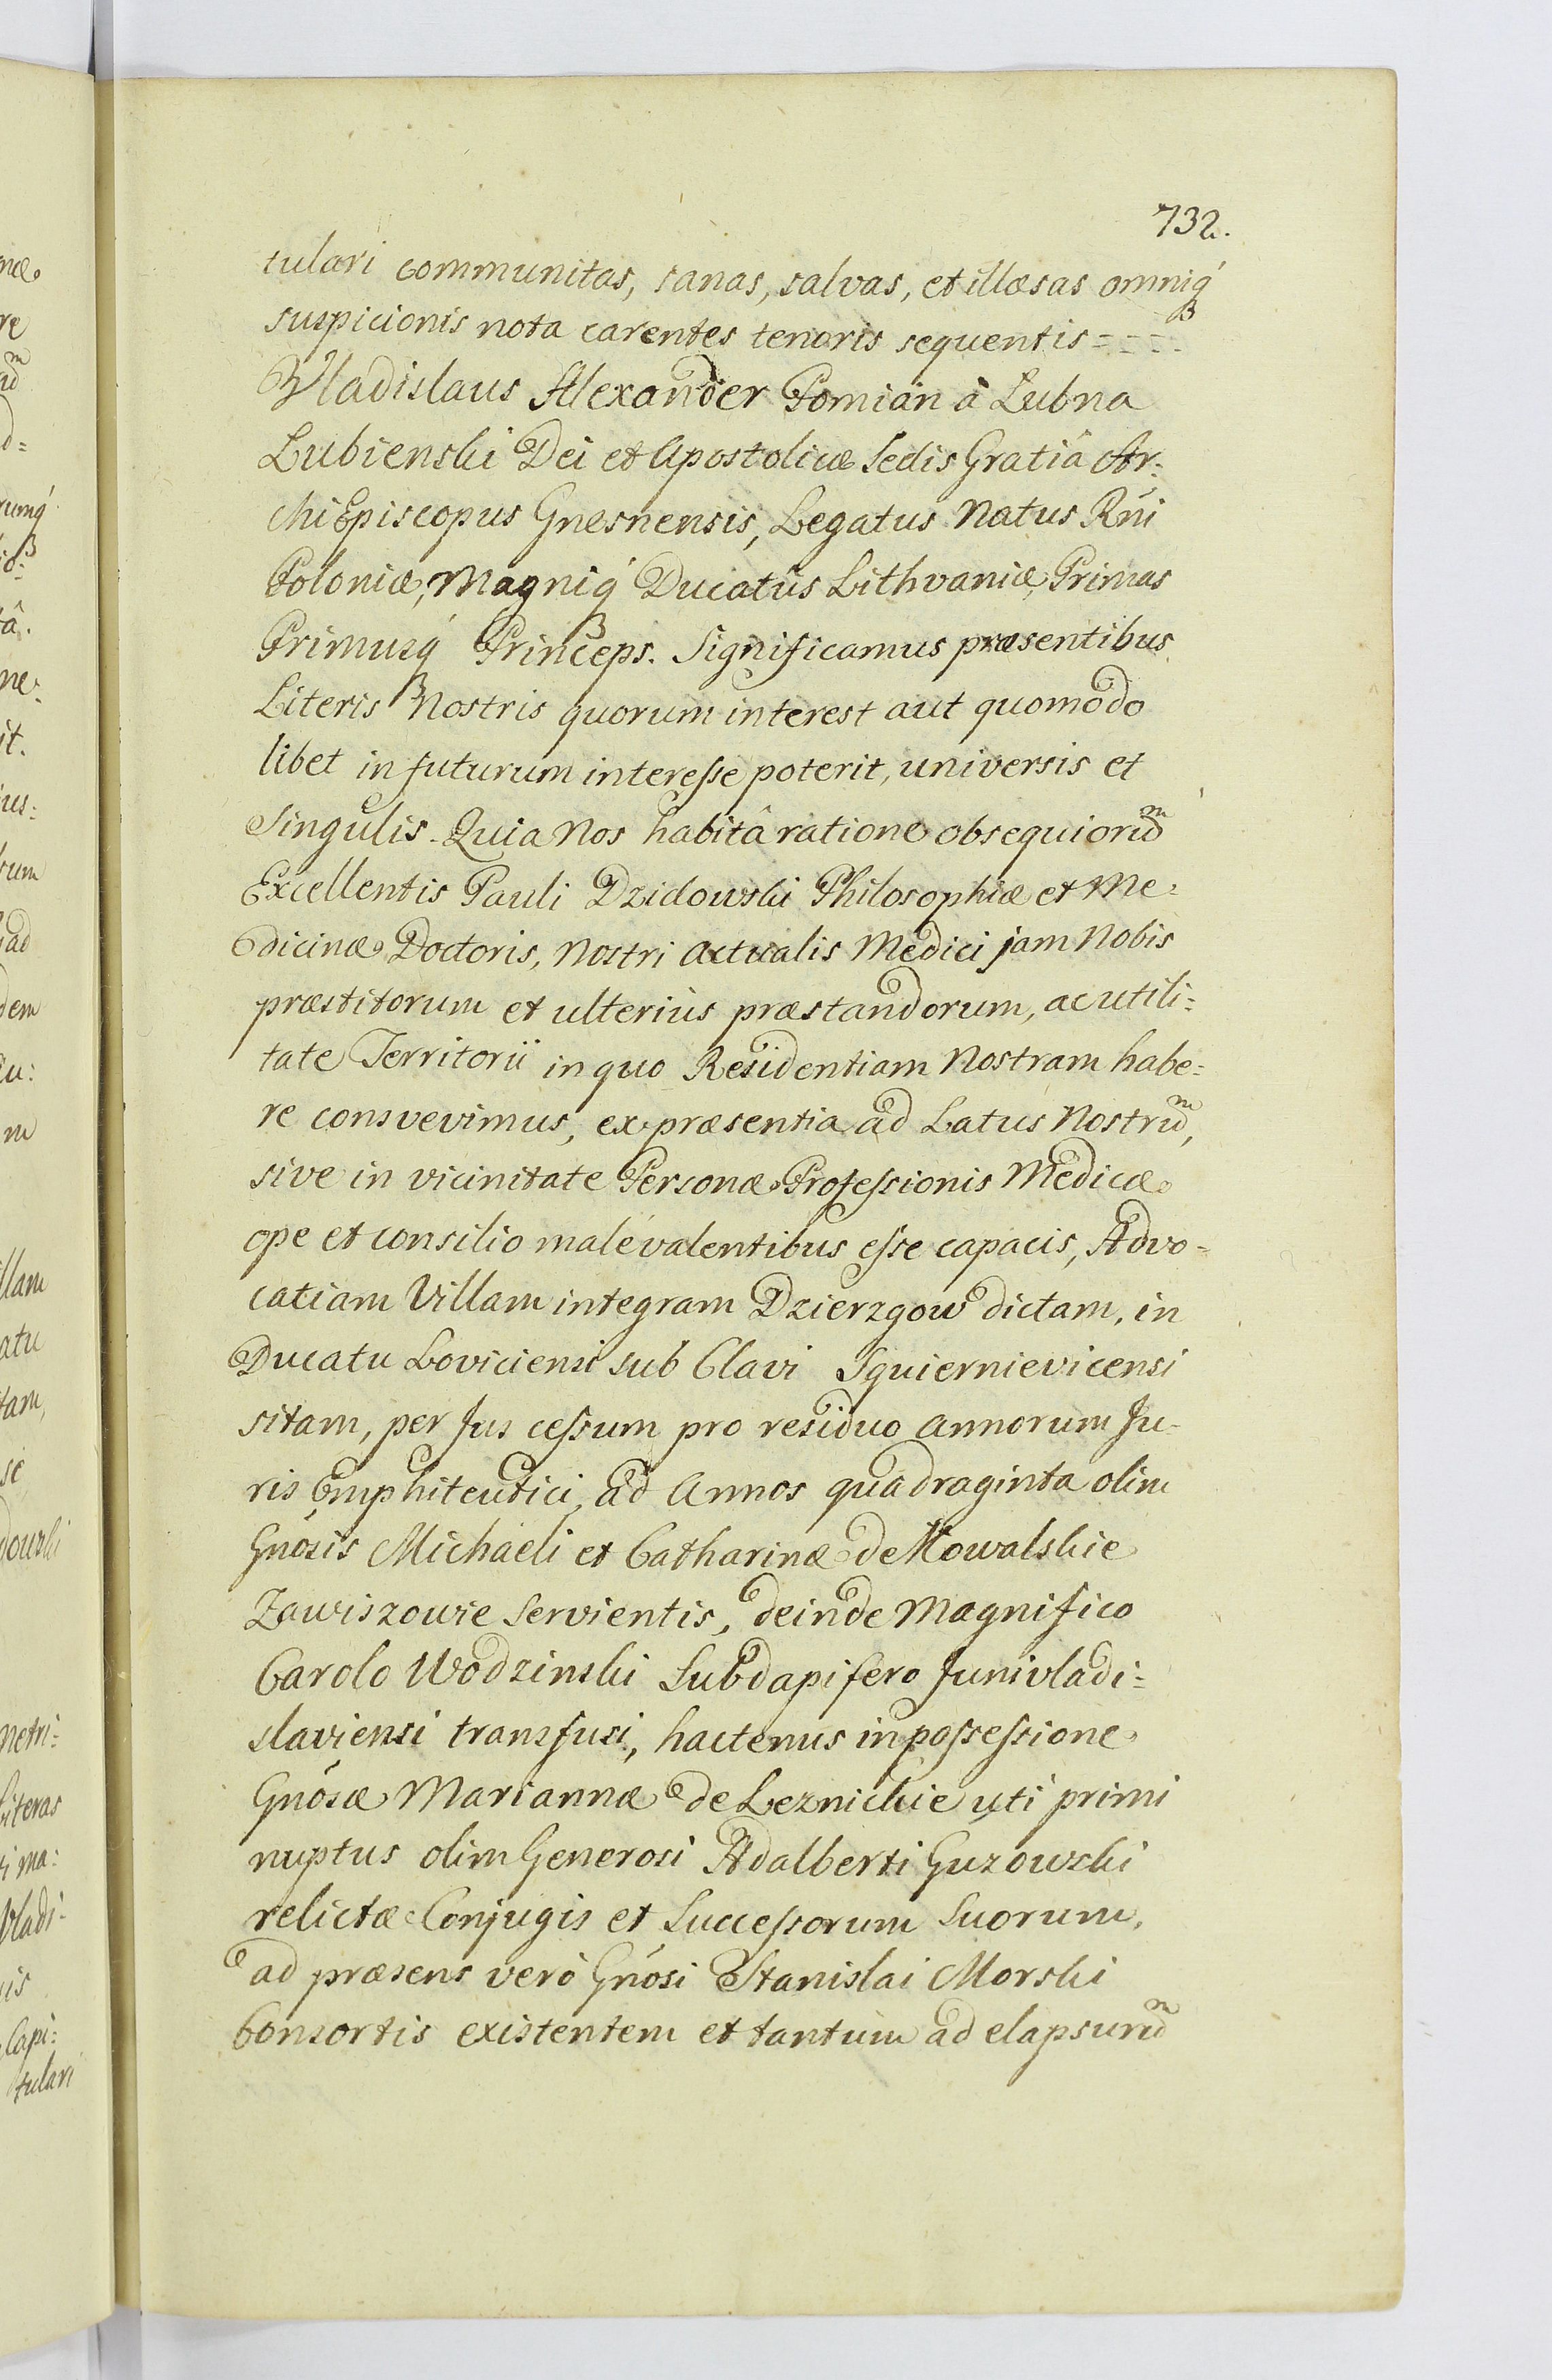 732.
tulari communitas, sanas, salvas, et illæsas omniq́
suspicionis nota carentes tenoris sequentis = - - -
Vladislaus Alexander Pomian à Lubna
Lubienski Dei et Apostolicæ Sedis Gratiâ Ar:
chi Episcopus Gnesnensis, Legatus Natus Rńi
Poloniæ, Magniq́ Ducatûs Lithvaniæ, Primas
Primusq́ Princeps. Significamus præsentibus
Literis Nostris quorum interest aut quomodo
libet in futurum interesse poterit, universis et
Singulis. Quia Nos habitâ ratione obsequiorum
Excellentis Pauli Dzidowski Philosophiæ et Me:
dicinæ Doctoris, Nostri Actualis Medici jam Nobis
præstitorum et ulteriùs præstandorum, ac utili:
tate Territorii in quo Residentiam Nostram habe:
re consvevimus, ex præsentia ad Latus Nostrum,
sive in vicinitate Personæ Professionis Medicæ
ope et consilio malè valentibus esse capacis, Advo=
catiam Villam integram Dzierzgow dictam, in
Ducatu Loviciensi sub Clavi Squiernievicensi
sitam, per Jus cessum pro residuo Annorum Ju-
ris Emphiteutici, ad Annos quadraginta olim
Gnósis Michaeli et Catharinæ de Kowalskie
Zawiszowie Servientis, deinde Magnifico
Carolo Wodzinski Subdapifero Junivladi:
slaviensi transfusi, hactenus in possessione
Gnósæ Mariannæ de Leznickie uti primi
nuptus olim Generosi Adalberti Guzowski
relictæ Conjugis et Successorum Suorum,
ad præsens verò Gnósi Stanislai Morski
Consortis existentem et tantum ad elapsurum